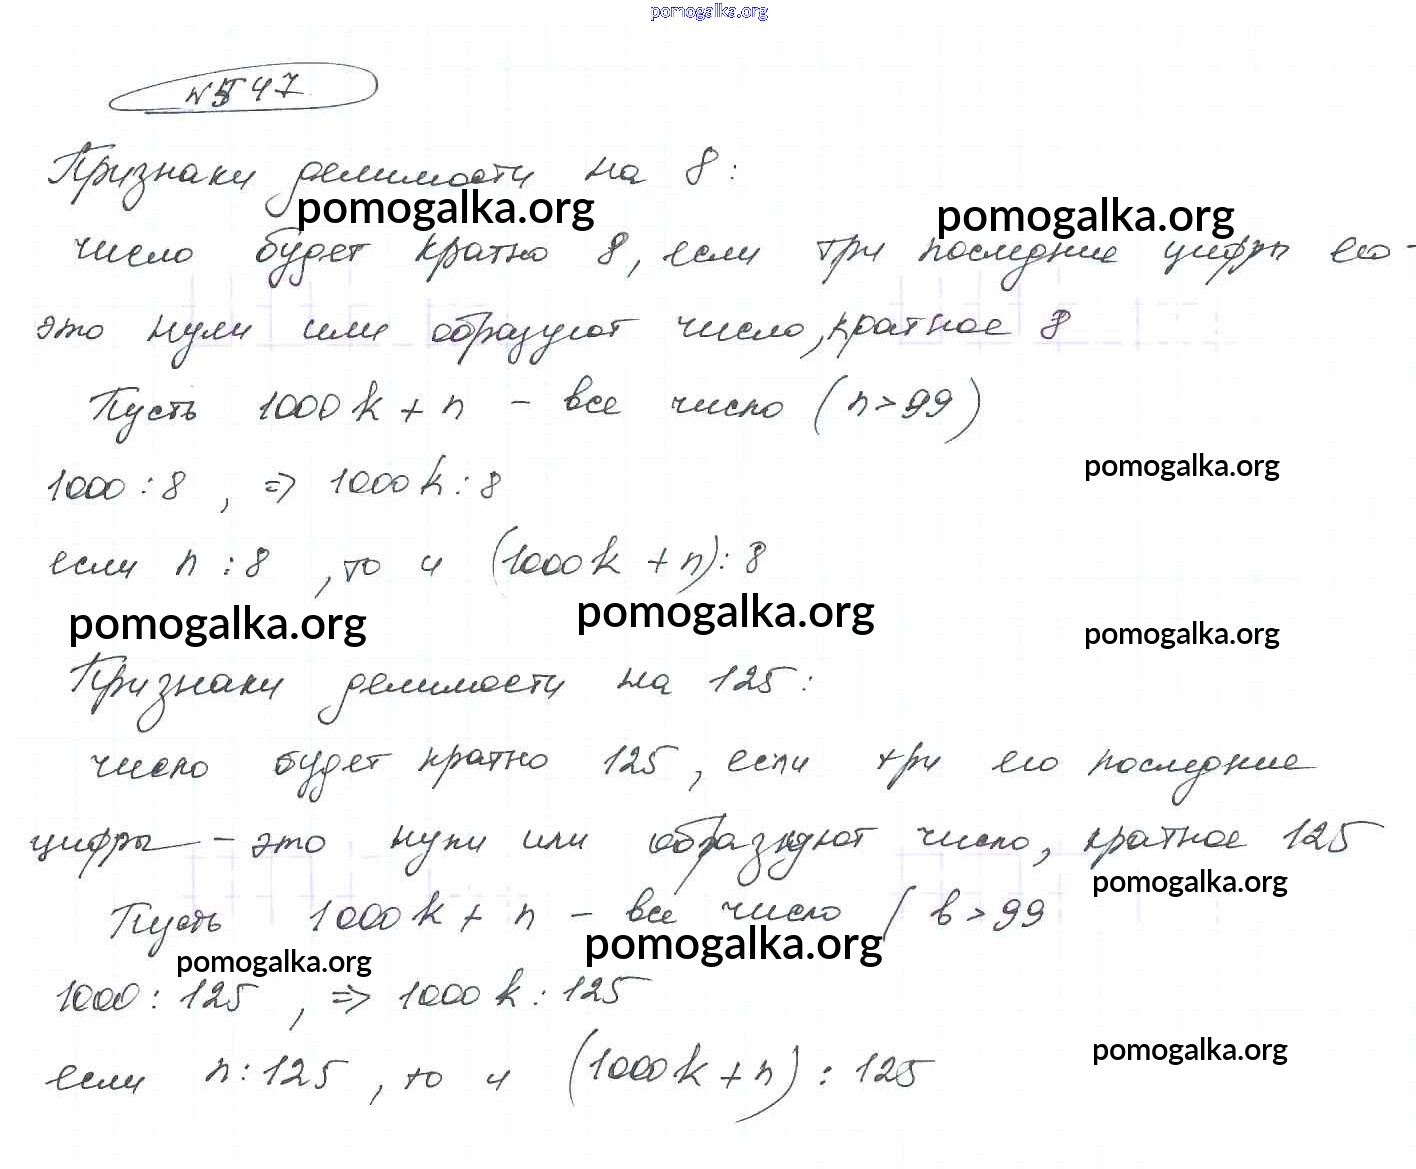 pomogalka.org
№547
Признаки делимости на 8:
pomogalka.org pomogalka.org
число будет кратно 8, если три последние цифры его -
это нули или образуют число, кратное 8
Пусть 1000k + n - все число (n > 99)
pomogalka.org
1000 : 8 , => 1000k : 8
если n : 8 , то и (1000k + n) : 8
pomogalka.org pomogalka.org pomogalka.org
Признаки делимости на 125:
число будет кратно 125, если три его последние
цифры - это нули или образуют число, кратное 125
pomogalka.org
Пусть 1000k + n - все число ( b > 99
pomogalka.org pomogalka.org
1000 : 125 , => 1000k : 125
если n : 125 , то и (1000k + n) : 125
pomogalka.org